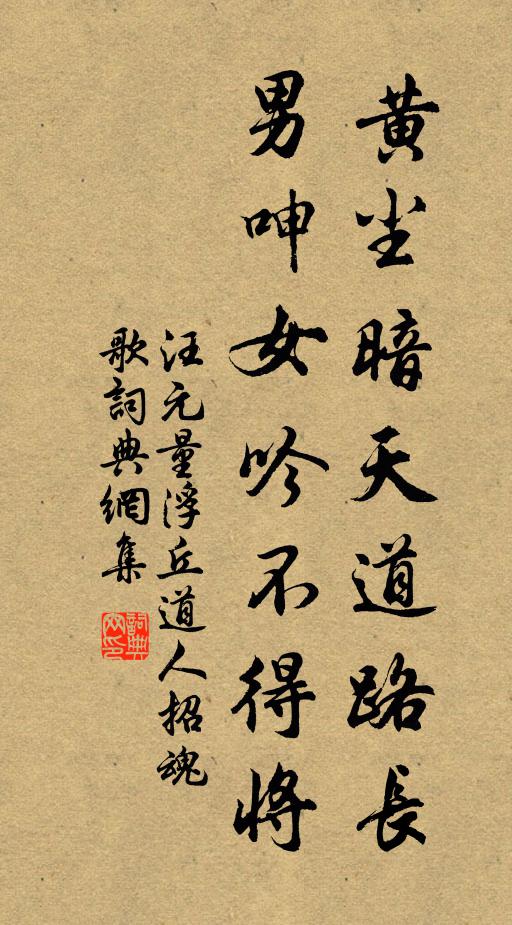 黃尘暗天道路長
男呻女吟不得將
汪元量浮丘道人招魂
歌詞典網集
詞典
网印